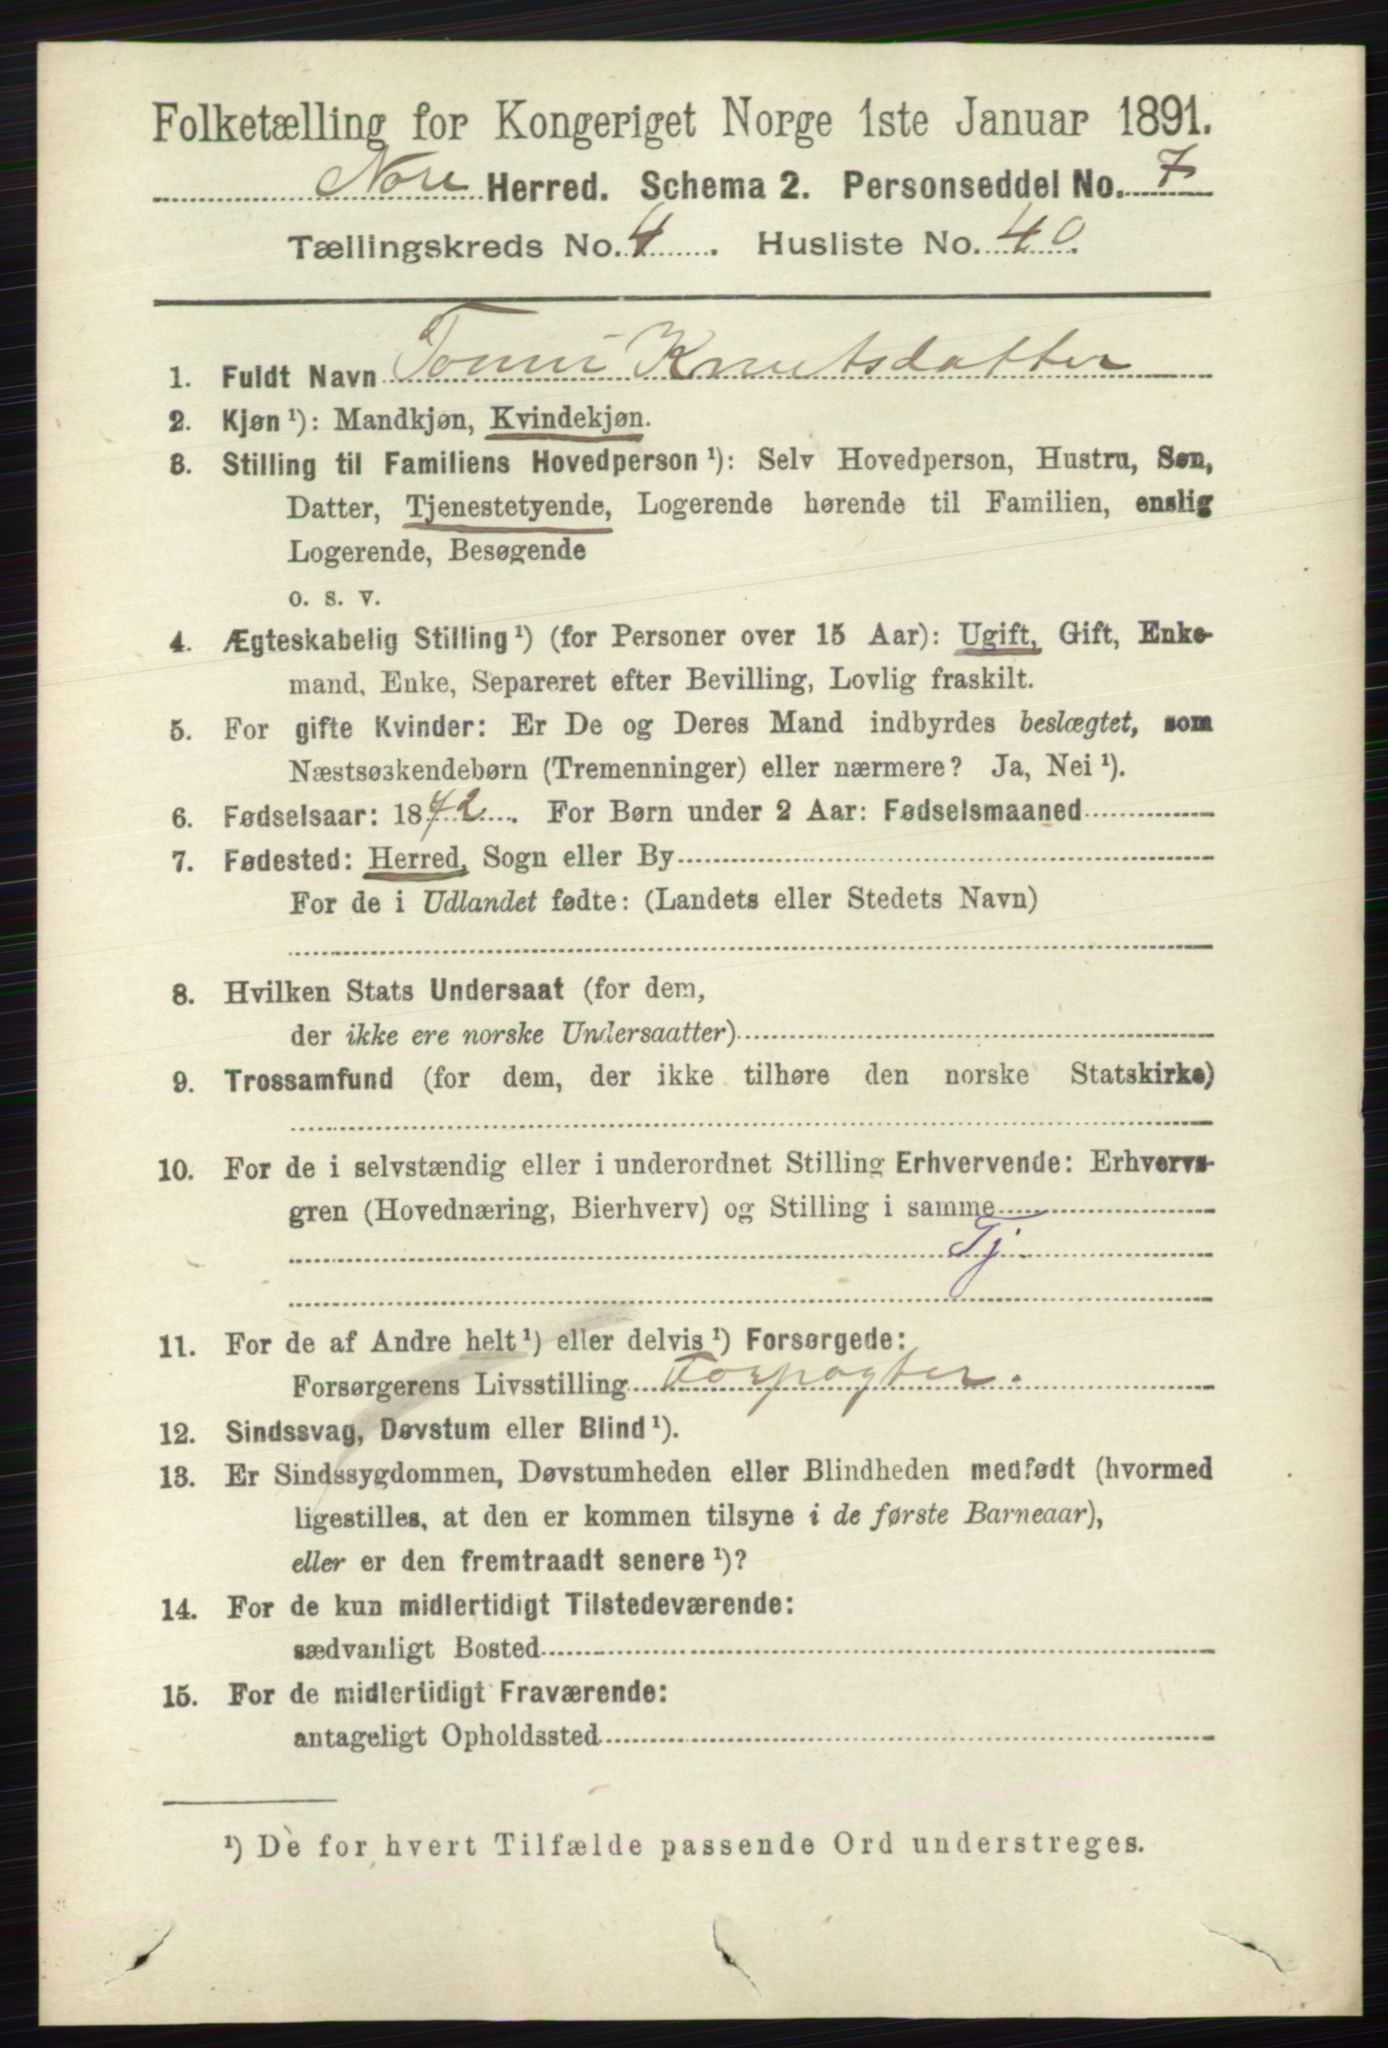 Folketælling for Kongeriget Norge 1ste Januar 1891.
Nore Herred. Schema 2. Personseddel No. 7
Tællingskreds No. 4. Husliste No. 40.
1. Fuldt Navn Tonni Knutsdatter
2. Kjøn ¹): Mandkjøn, Kvindekjøn.
3. Stilling til Familiens Hovedperson ¹): Selv Hovedperson, Hustru, Søn,
Datter, Tjenestetyende, Logerende hørende til Familien, enslig
Logerende, Besøgende
o. s. v.
4. Ægteskabelig Stilling ¹) (for Personer over 15 Aar): Ugift, Gift, Enke-
mand, Enke, Separeret efter Bevilling, Lovlig fraskilt.
5. For gifte Kvinder: Er De og Deres Mand indbyrdes beslægtet, som
Næstsøskendebørn (Tremenninger) eller nærmere? Ja, Nei ¹).
6. Fødselsaar: 1872. For Børn under 2 Aar: Fødselsmaaned
7. Fødested: Herred, Sogn eller By
For de i Udlandet fødte: (Landets eller Stedets Navn)
8. Hvilken Stats Undersaat (for dem,
der ikke ere norske Undersaatter)
9. Trossamfund (for dem, der ikke tilhøre den norske Statskirke)
10. For de i selvstændig eller i underordnet Stilling Erhvervende: Erhvervs-
gren (Hovednæring, Bierhverv) og Stilling i samme
Tj
11. For de af Andre helt ¹) eller delvis ¹) Forsørgede:
Forsørgerens Livsstilling Forpagter.
12. Sindssvag, Døvstum eller Blind ¹).
13. Er Sindssygdommen, Døvstumheden eller Blindheden medfødt (hvormed
ligestilles, at den er kommen tilsyne i de første Barneaar),
eller er den fremtraadt senere ¹)?
14. For de kun midlertidigt Tilstedeværende:
sædvanligt Bosted
15. For de midlertidigt Fraværende:
antageligt Opholdssted
¹) De for hvert Tilfælde passende Ord understreges.